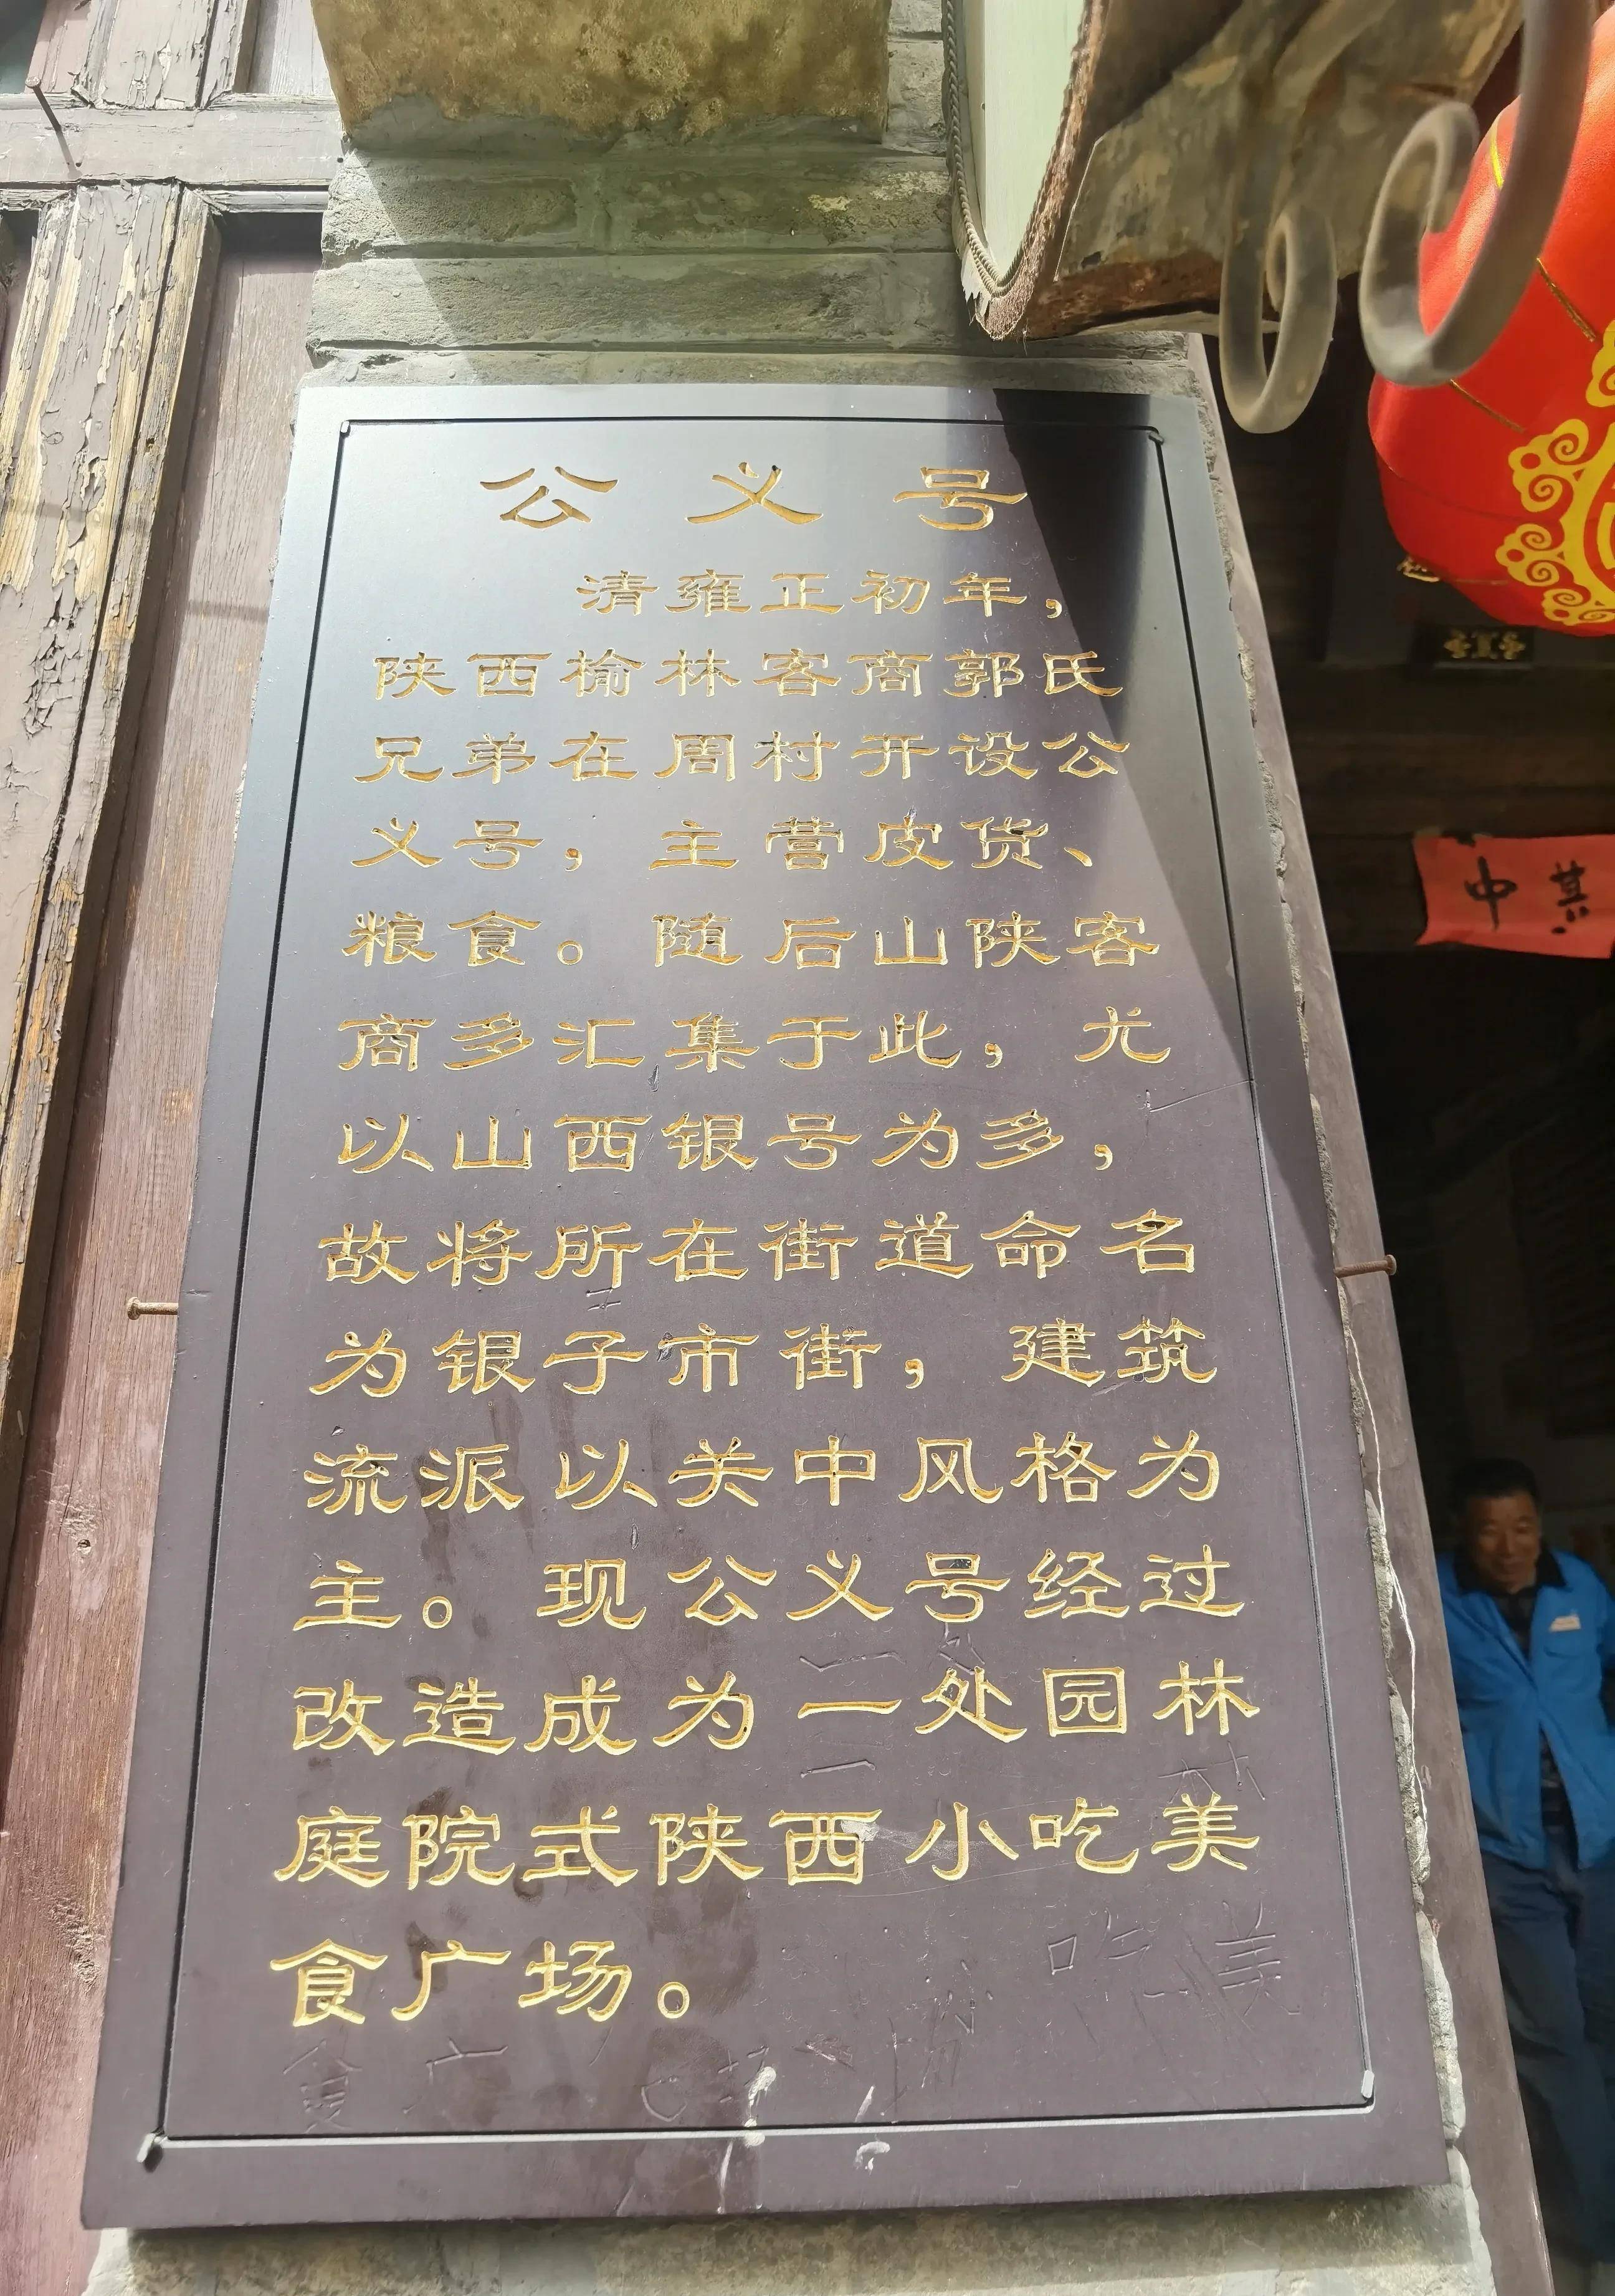 公义号
清雍正初年，
陕西榆林客商郭氏
兄弟在周村开设公
义号，主营皮货、
粮食。随后山陕客
商多汇集于此，尤
以山西银号为多，
故将所在街道命名
为银子市街，建筑
流派以关中风格为
主。现公义号经过
改造成为一处园林
庭院式陕西小吃美
食广场。
中其